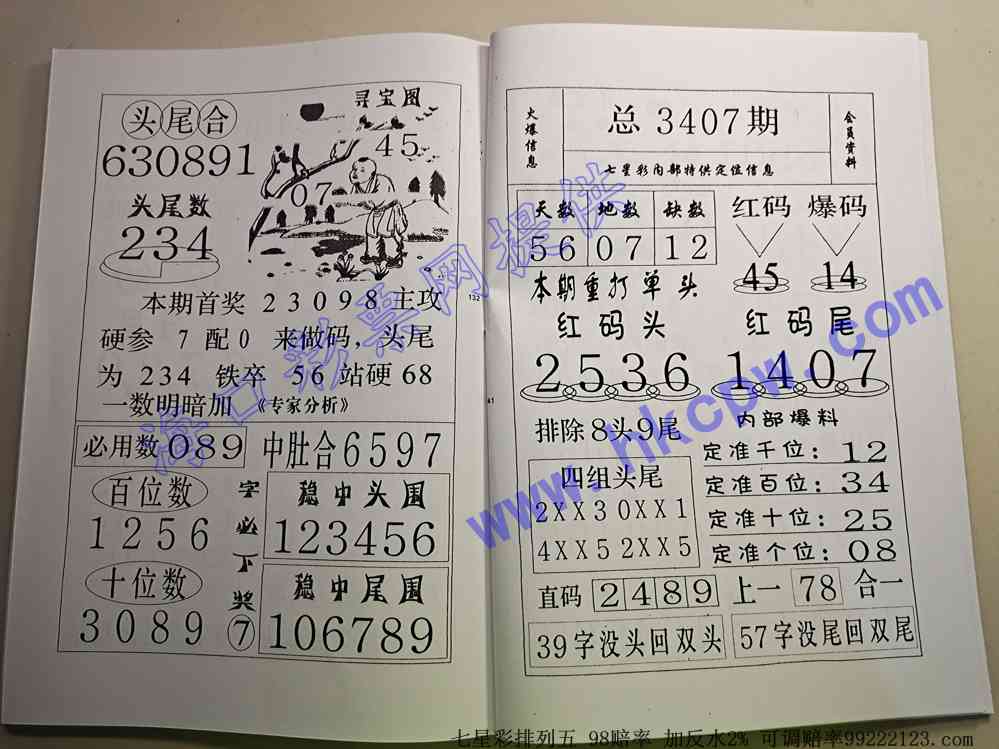 头尾合
630891
寻宝图
45
07
头尾数
234
本期首奖 23098主攻
硬参 7配0 来做码，头尾
为 234 铁卒 56站硬68
一数明暗加 《专家分析》
必用数 089
中肚合6597
百位数
1256
十位数
3089
字必下奖⑦
稳中头围
123456
稳中尾围
106789
132
41
火爆信息
总 3407期
七星彩内部特供定位信息
会员资料
天数 地数 缺数
56 07 12
红码 爆码
45 14
本期重打单头
红码头
2536
红码尾
1407
排除8头9尾
四组头尾
2XX3 0XX1
4XX5 2XX5
内部爆料
定准千位：12
定准百位：34
定准十位：25
定准个位：08
直码 2489 上一 78 合一
39字没头回双头
57字没尾回双尾
海口彩票网提供
www.hkcpw.com
七星彩排列五 98赔率 加反水2% 可调赔率99222123.com